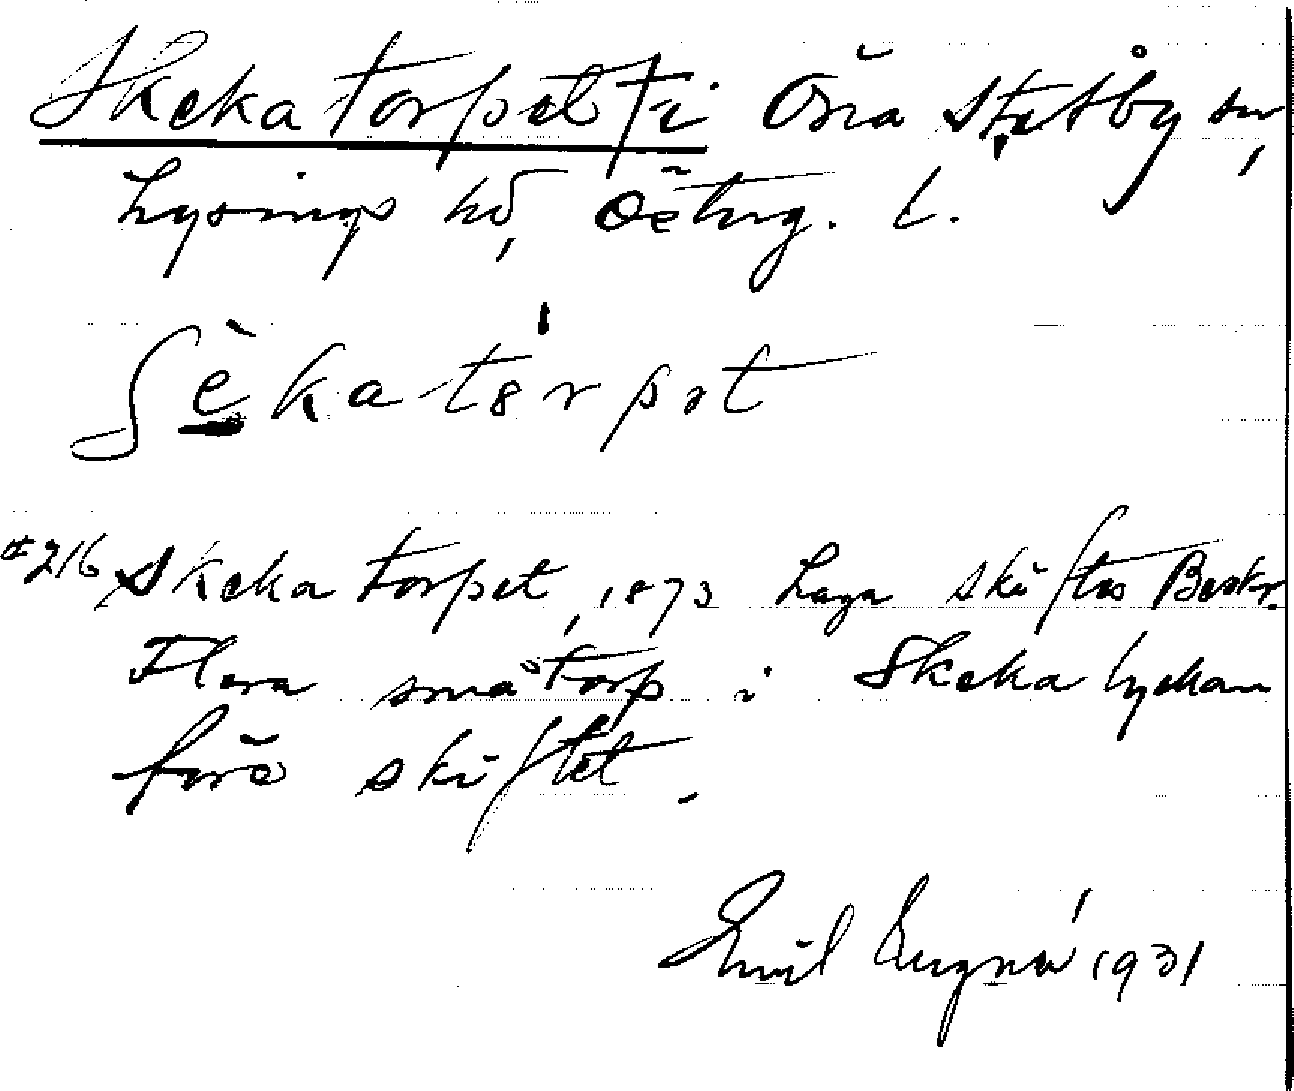 Skekatorpet † i Östra Stenby sn,
Lysings hd, Östrg. l.
ʃèkatɵ̍rpət
#216 Skekatorpet, 1873 Laga skiftes Beskr.
Flera småtorp i Skeka lyckan
före skiftet.
Emil 1931